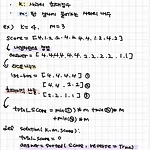 k : 사과의 최대점수
m : 한 상자에 들어가는 사과의 개수
ex) k=4, m=3
score = [4,1,2,2,4,4,4,4,1,2,4,2]
↓ 내림차순 정렬
answer = [4,4,4,4,4,4,2,2,2,2,1,1]
↓
[4,4,4]
[4,4,4]
[2,2,2]
[2,1,1]
total_score = min(①) * m + min(②) * m
+ min(③) * m
def solution(k, m, score):
total_score = 0
answer = sorted(score, reverse = True)